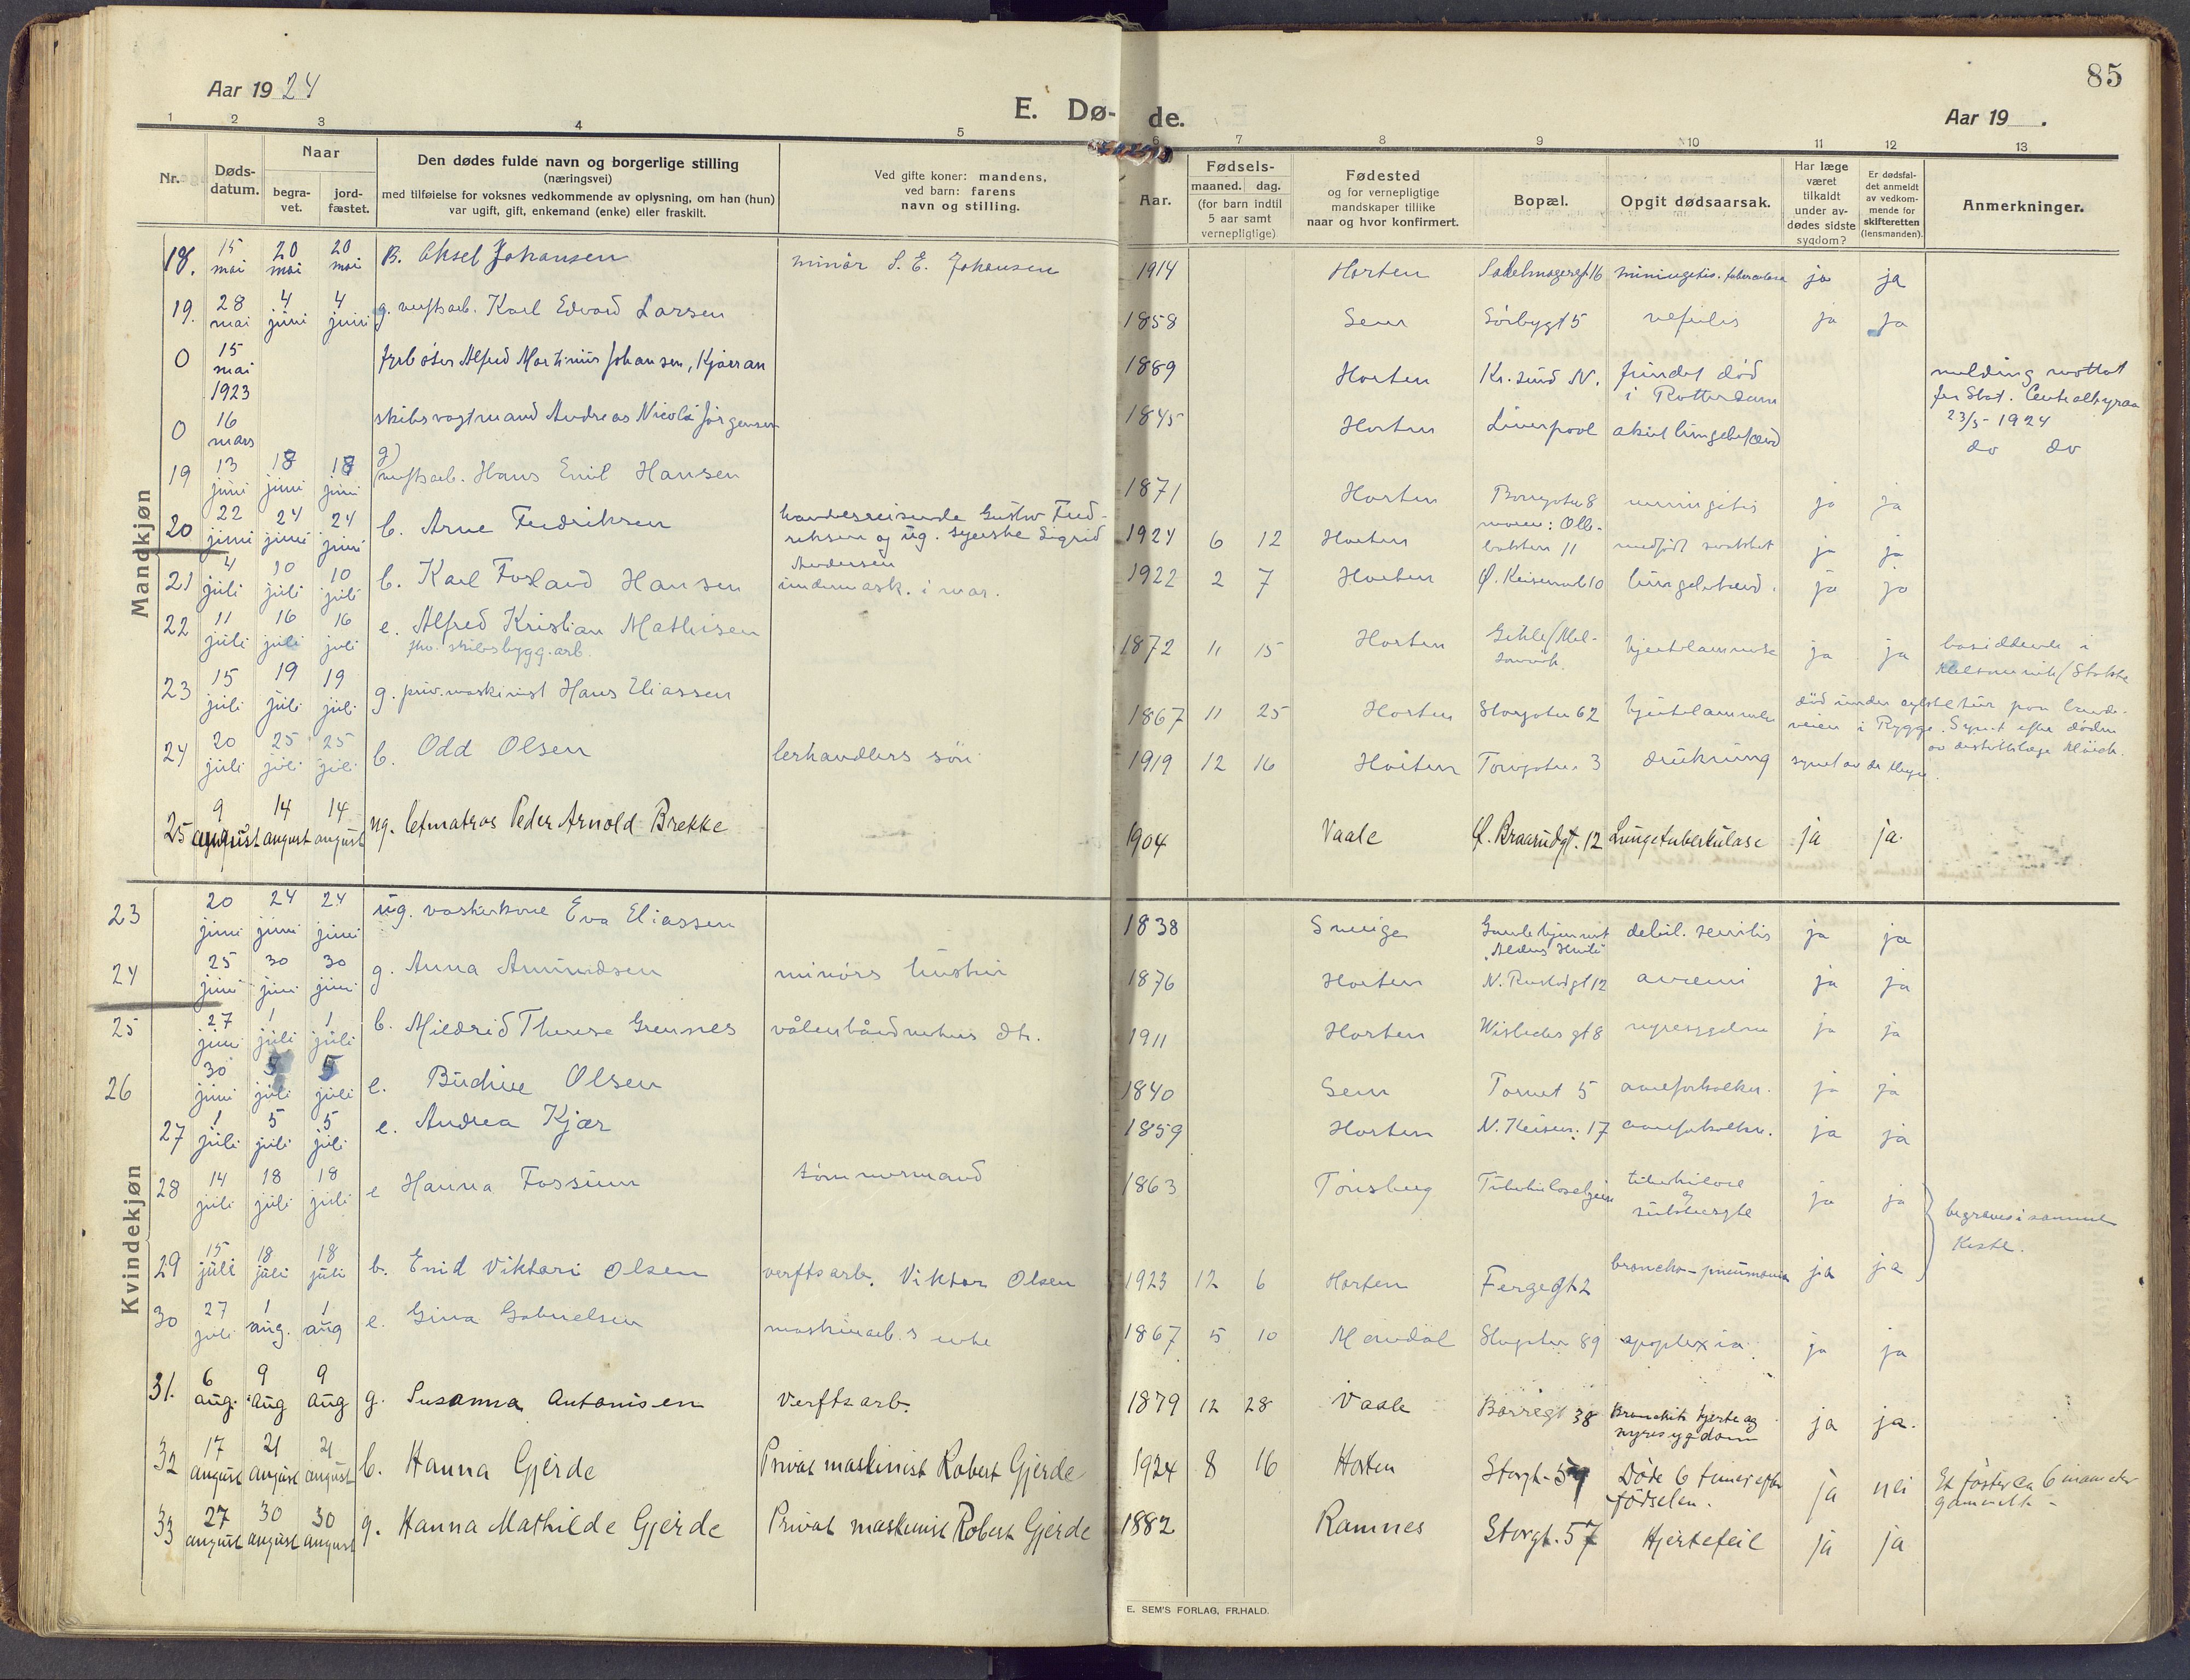 Aar 1924
E. Dø-
de.
Aar 19 .
85
1 2 3 4 5 6 7 8 9 10 11 12 13
Nr.
Døds-
datum.
Naar
begra-
vet.
jord-
fæstet.
Den dødes fulde navn og borgerlige stilling
(næringsvei)
med tilføielse for voksnes vedkommende av oplysning, om han (hun)
var ugift, gift, enkemand (enke) eller fraskilt.
Ved gifte koner: mandens,
ved barn: farens
navn og stilling.
Aar.
Fødsels-
maaned. dag.
(for barn indtil
5 aar samt
vernepligtige)
Fødested
og for vernepligtige
mandskaper tillike
naar og hvor konfirmert.
Bopæl.
Opgit dødsaarsak.
Har læge
været
tilkaldt
under av-
dødes sidste
sygdom?
Er dødsfal-
det anmeldt
av vedkom-
mende for
skifteretten
(lensmanden).
Anmerkninger.
Mandkjøn
18. 15 mai 20 mai 20 mai B. Aksel Johansen minör S. E. Johansen 1914 Horten ja ja
19. 28 mai 4 juni 4 juni g. verftsarb. Karl Edvard Larsen 1858 Sem Sörbygt 5 ja ja
0 15 mai 1923 fyrböter Alfred Martinius Johansen, Kjærran 1889 Horten Kr. sund N. fundet död i Rotterdam melding mottat fra Stat. Centralbyraa 23/5 - 1924
0 16 mars skibsvagtmand Andreas Nicolai Jörgensen 1845 Horten Liverpool do do
19 13 juni 18 juni 18 juni g) verftsarb. Hans Emil Hansen 1871 Horten meningitis ja ja
20 22 juni 24 juni 24 juni b. Arne Fredriksen handelsreisende Gustav Fred-
riksen og ug. syerske Sigrid
Andersen 1924 6 12 Horten medfödt svakhet ja ja
21 4 juli 10 juli 10 juli b. Karl Fosland Hansen i mar. 1922 2 7 Horten Ø. Keiserveb 10 ja ja
22 11 juli 16 juli 16 juli e. Alfred Kristian Mathisen
fhv. skibsbygg.arb. 1872 11 15 Horten hjertelammelse ja ja
23 15 juli 19 juli 19 juli g. priv. maskinist Hans Eliassen 1867 11 25 Horten Storgaten 62 hjertelammelse död under cykletur paa lande-
veien i Rygge. Synet efter döden
24 20 juli 25 juli 25 juli b. Odd Olsen lerhandlers sön 1919 12 16 Horten Torvgaten 3 drukning
25 9 august 14 august 14 august ug. letmatros Peder Arnold Brekke 1904 Vaale Ø. Braarudgt. 12 Lungetuberkulose ja ja.
Kvindekjøn
23 20 juni 24 juni 24 juni ug. vaskerkone Eva Eliassen 1838 Sverige Gamlehjemmet debil. senilis ja ja
24 25 juni 30 juni 30 juni g. Anna Amundsen minörs hustru 1876 Horten ja ja
25 27 juni 1 juli 1 juli b. Mildrid Therese Grennes dtr. 1911 Horten Wisbechs gt 8 nyresygdom ja ja
26 30 juni 5 juli 5 juli e. Budine Olsen 1840 Sem Tornet 5 ja ja
27 1 juli 5 juli 5 juli e. Andrea Kjær 1859 Horten N. Keiser. 17 ja ja
28 14 juli 18 juli 18 juli e Hanna Fossum tömmermand 1863 Tönsberg ja ja
29 15 juli 18 juli 18 juli b. Enid Viktori Olsen verftsarb. Viktor Olsen 1923 12 6 Horten Fergegt 2 broncho-pneumonia ja ja
begraves i samme
kiste.
30 27 juli 1 aug. 1 aug e. Gina Gabrielsen maskinarb.s enke 1867 5 10 Mandal Storgaten 89 apoplexia ja ja
31. 6 aug. 9 aug 9 aug g. Susanna Antonisen Verftsarb. 1879 12 28 Vaale Borregt 38 Bronchit hjerte og
nyresygdom ja ja.
32 17 august 21 august 21 august b. Hanna Gjerde Privat maskinist Robert Gjerde 1924 8 16 Horten Storgt. 57 Döde 6 timer efter
födselen. ja nei Et foster ca 6 maaneder
gammelt -
33 27 august 30 august 30 august g. Hanna Mathilde Gjerde Privat maskinist Robert Gjerde 1882 Ramnes Storgt. 57 Hjertefeil ja ja
E. SEM'S FORLAG, FR.HALD.